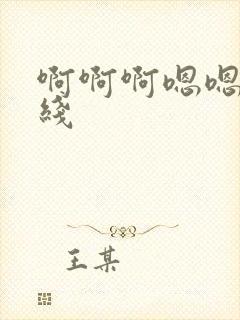 啊啊啊嗯嗯
綫
王某